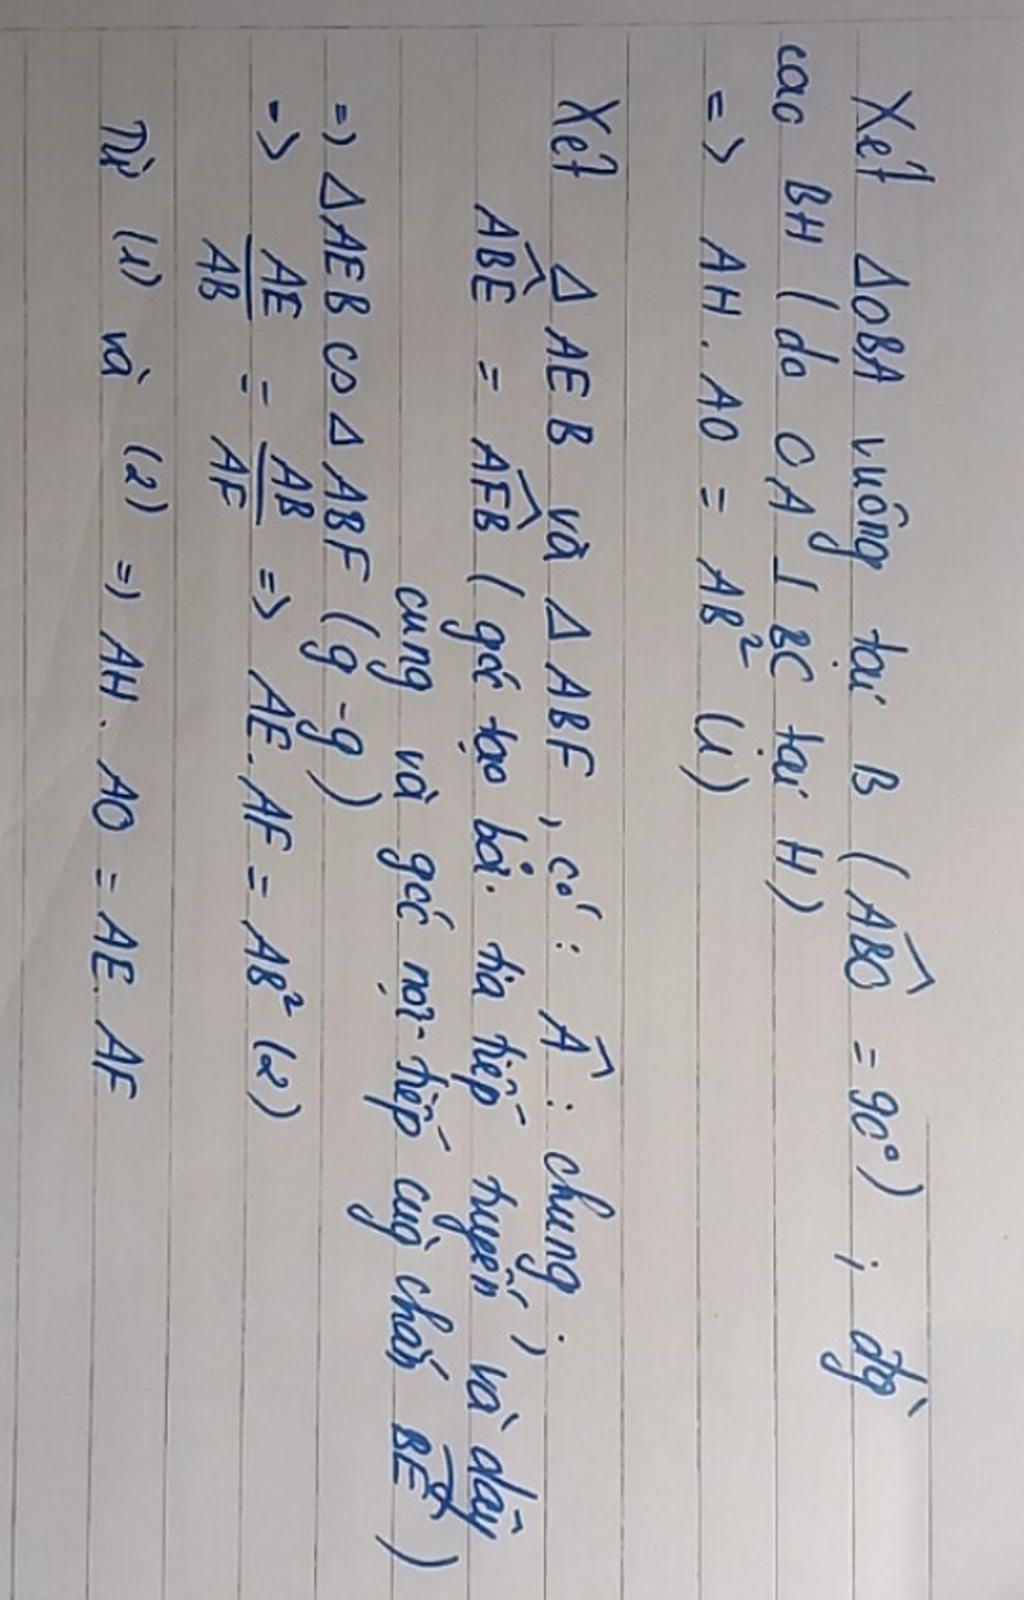 Xét ΔOBA vuông tại B (ABÔ = 90°) ; đg̀
cao BH (do OA ⊥ BC tại H)
=> AH . AO = AB² (1)
Xét Δ AEB và Δ ABF , có : Â : chung .
ABÊ = AFB̂ ( góc tạo bởi tia tiếp tuyến , và dây
cung và góc nội tiếp cùng chắn BE )
=> ΔAEB ∽ Δ ABF (g-g)
=> AE/AB = AB/AF => AE . AF = AB² (2)
Từ (1) và (2) => AH . AO = AE . AF